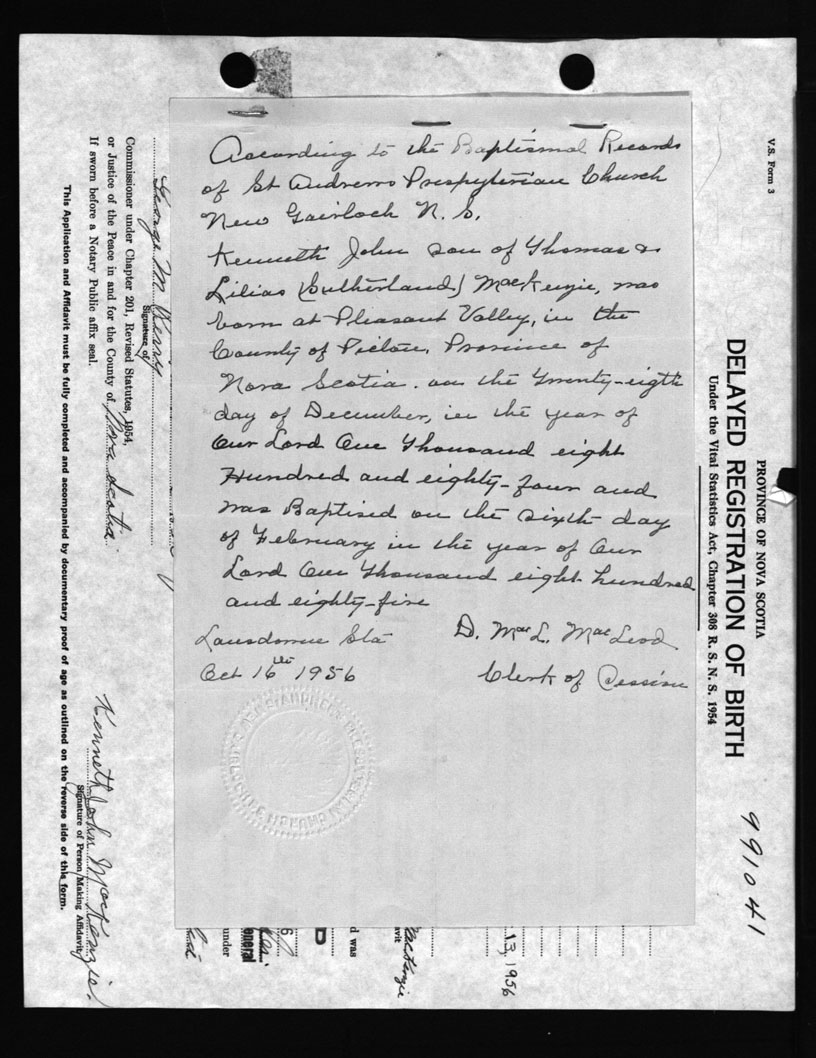 According to the Baptismal Records
of St Andrews Presbyterian Church
New Gairloch N. S.
Kenneth John son of Thomas &
Lilias (Sutherland) MacKenzie, was
born at Pleasant Valley, in the
County of Pictou, Province of
Nova Scotia. on the Twenty-eigth
day of December, in the year of
Our Lord One Thousand eight
Hundred and eighty-four and
was Baptised on the sixth day
of February in the year of Our
Lord One Thousand eight hundred
and eighty-five
Lansdowne Sta
Oct 16th 1956
D. MacL. MacLeod
Clerk of Session
V.S. Form 3
PROVINCE OF NOVA SCOTIA
DELAYED REGISTRATION OF BIRTH
Under the Vital Statistics Act, Chapter 308 R. S. N. S. 1954
991041
13, 1956
MacKenzie
avit
d was
D
6
eneral
under
George M.
Signature of
Commissioner under Chapter 201, Revised Statutes, 1954,
or Justice of the Peace in and for the County of Nova Scotia
If sworn before a Notary Public affix seal.
Kenneth John MacKenzie.
Signature of Person Making Affidavit
This Application and Affidavit must be fully completed and accompanied by documentary proof of age as outlined on the reverse side of this form.